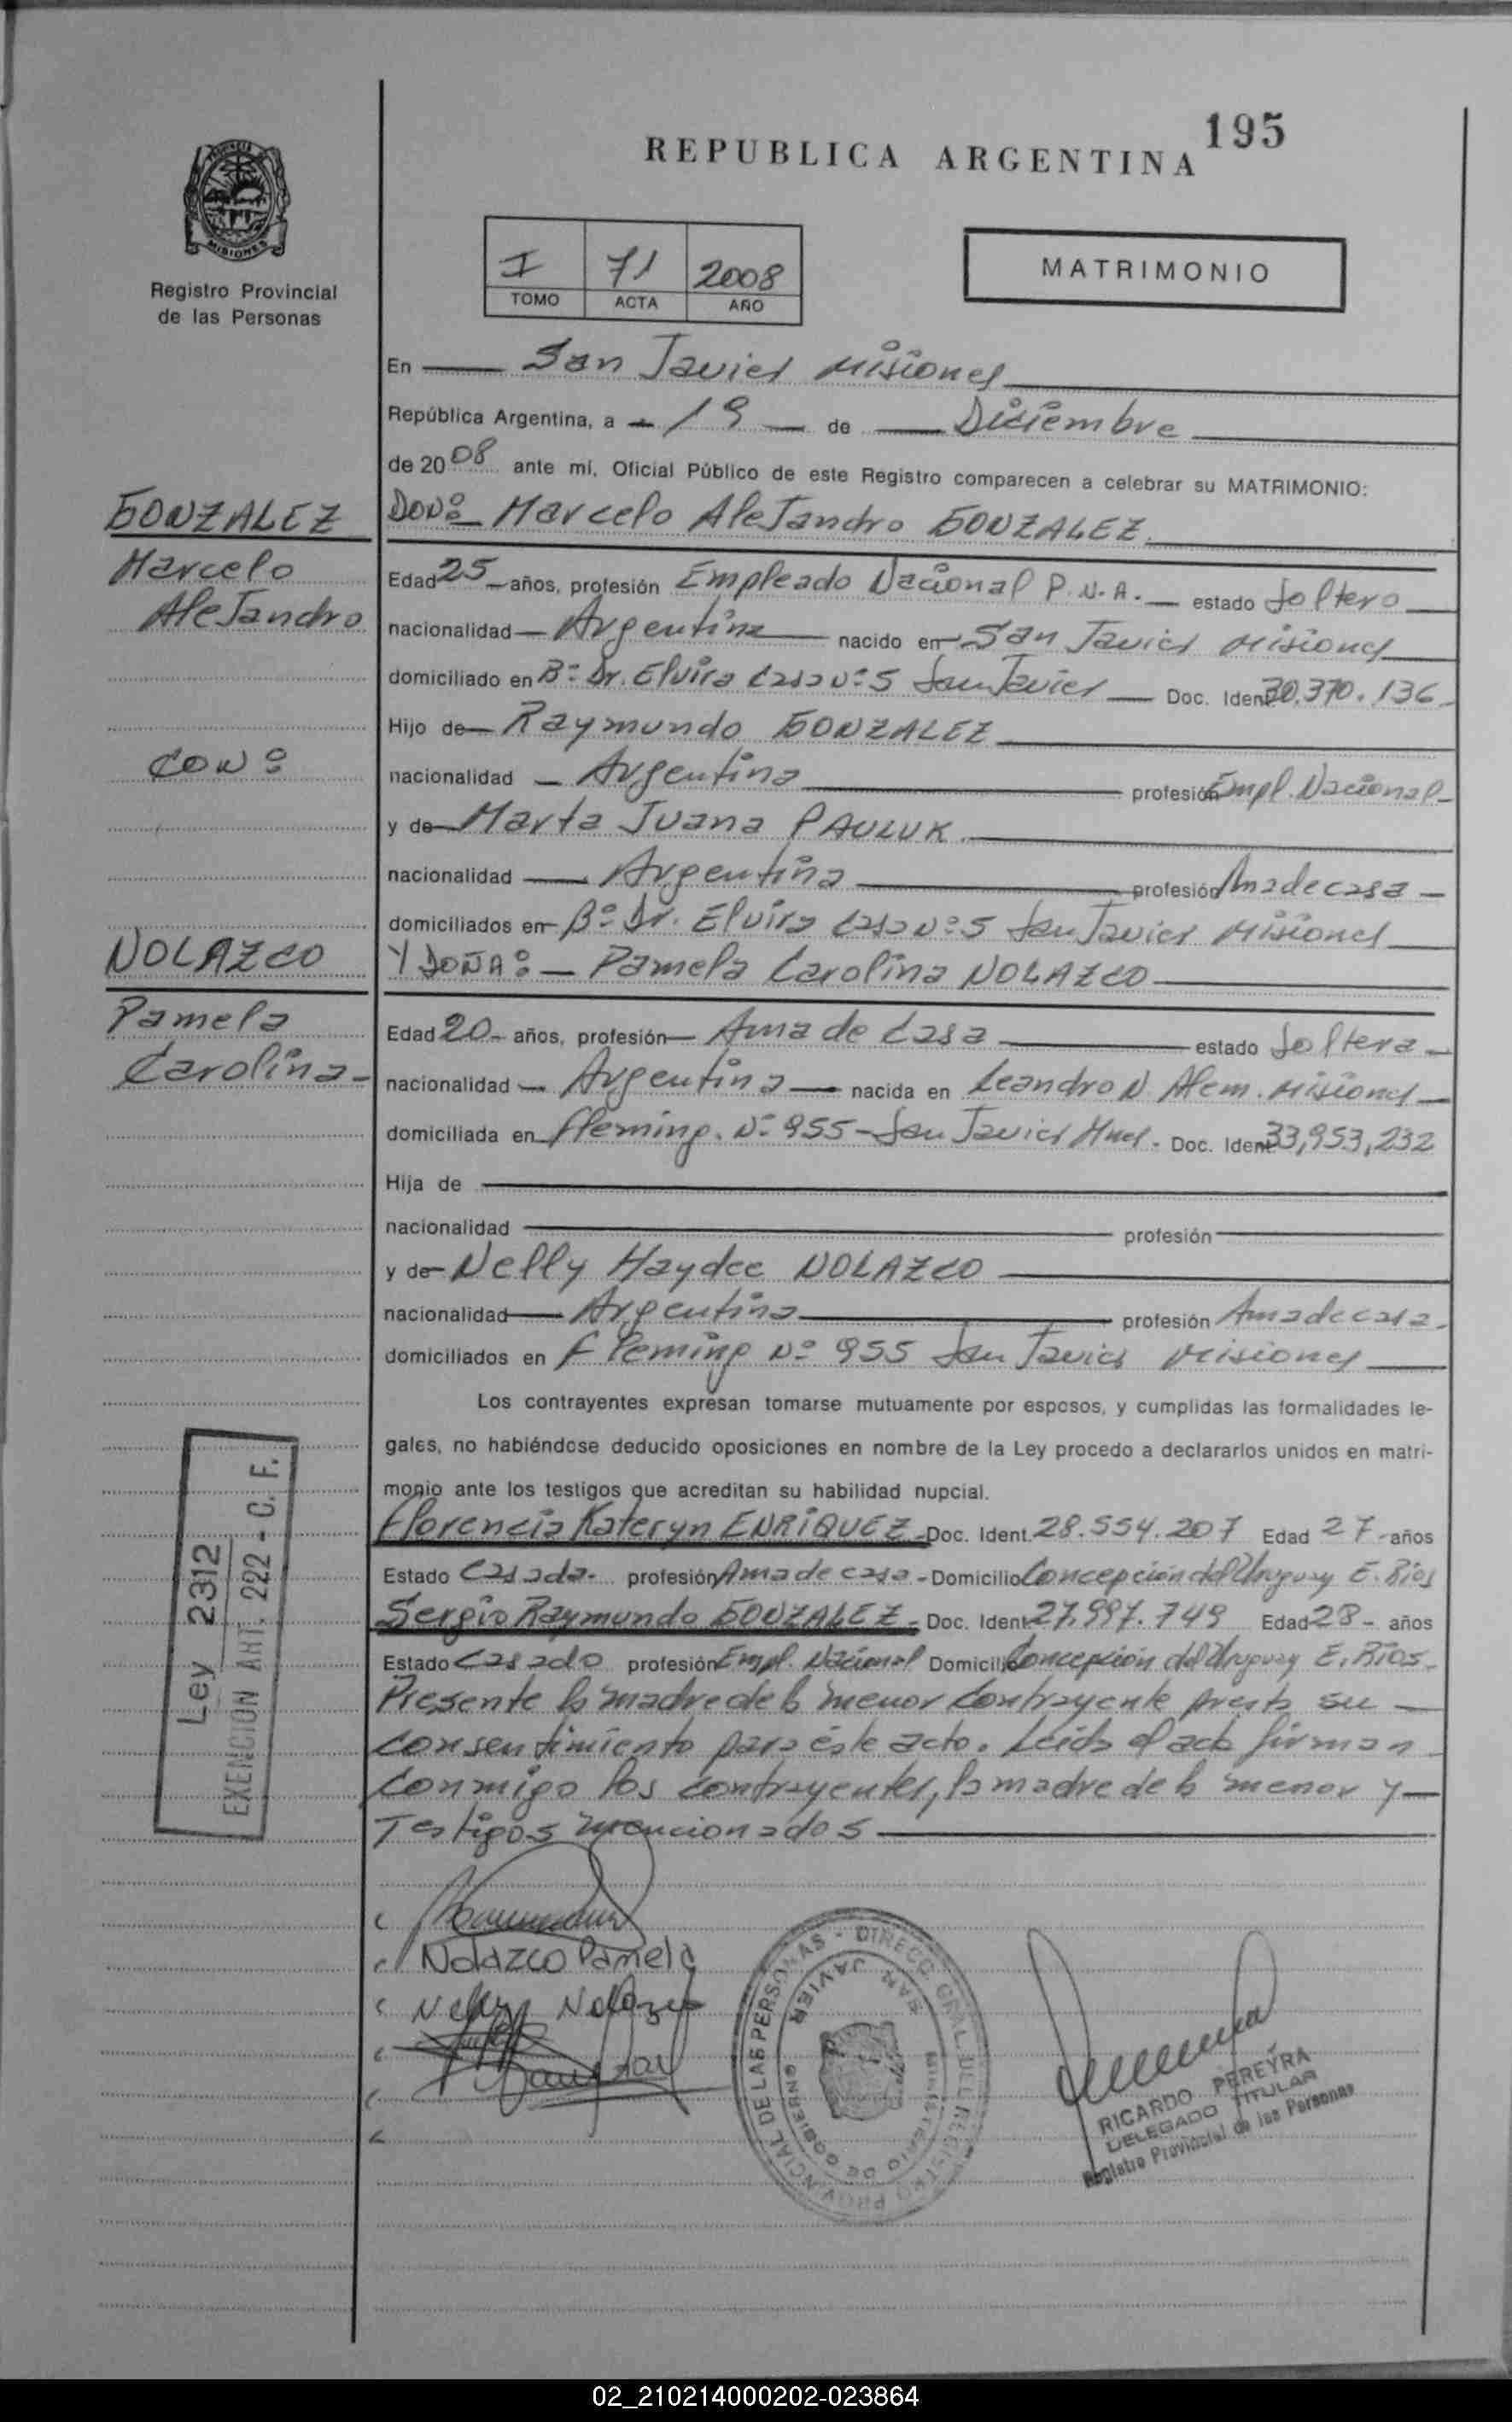 195
REPUBLICA ARGENTINA
MISIONES
Registro Provincial
de las Personas
I 71 2008
TOMO ACTA AÑO
MATRIMONIO
En San Javier Misiones
República Argentina, a 19 de Diciembre
de 2008 ante mí, Oficial Público de este Registro comparecen a celebrar su MATRIMONIO:
GONZALEZ
Marcelo
Alejandro
CON:
NOLAZCO
Pamela
Carolina-
DON: Marcelo Alejandro GONZALEZ
Edad 25 años, profesión Empleado Nacional P.N.A. estado Soltero
nacionalidad Argentina nacido en San Javier Misiones
domiciliado en B° Dr. Elvira Casa N° 5 San Javier Doc. Ident 30.370.136
Hijo de Raymundo GONZALEZ
nacionalidad Argentina profesión Empl. Nacional
y de Marta Juana PAULUK
nacionalidad Argentina profesión Ama de casa
domiciliados en B° Dr. Elvira Casa N° 5 San Javier Misiones
Y DOÑA: Pamela Carolina NOLAZCO
Edad 20 años, profesión Ama de Casa estado Soltera
nacionalidad Argentina nacida en Leandro N. Alem. Misiones
domiciliada en Fleming. N° 955 - San Javier Mnes. Doc. Ident 33,953,232
Hija de
nacionalidad profesión
y de Nelly Haydee NOLAZCO
nacionalidad Argentina profesión Ama de casa
domiciliados en Fleming N° 955 San Javier Misiones
Los contrayentes expresan tomarse mutuamente por esposos, y cumplidas las formalidades le-
gales, no habiéndose deducido oposiciones en nombre de la Ley procedo a declararlos unidos en matri-
monio ante los testigos que acreditan su habilidad nupcial.
Florencia Kateryn ENRIQUEZ Doc. Ident. 28.554.207 Edad 27 años
Estado Casada profesión Ama de casa - Domicilio Concepción del Uruguay E. Rios
Sergio Raymundo GONZALEZ Doc. Ident 27.997.749 Edad 28 años
Estado Casado profesión Empl. Nacional Domicilio Concepción del Uruguay E. Rios
Presente la madre de la menor contrayente presta su
consentimiento para éste acto. Leida el acta firman
conmigo los contrayentes, la madre de la menor y
Testigos mencionados
Ley 2312
EXENCION ART. 222 - C. F.
Nolazco Pamela
Nelly Nolazco
DIRECC. GRAL. DEL REGISTRO PROVINCIAL DE LAS PERSONAS
SAN JAVIER
MINISTERIO DE GOBIERNO
RICARDO PEREYRA
DELEGADO TITULAR
Registro Provincial de las Personas
02_210214000202-023864